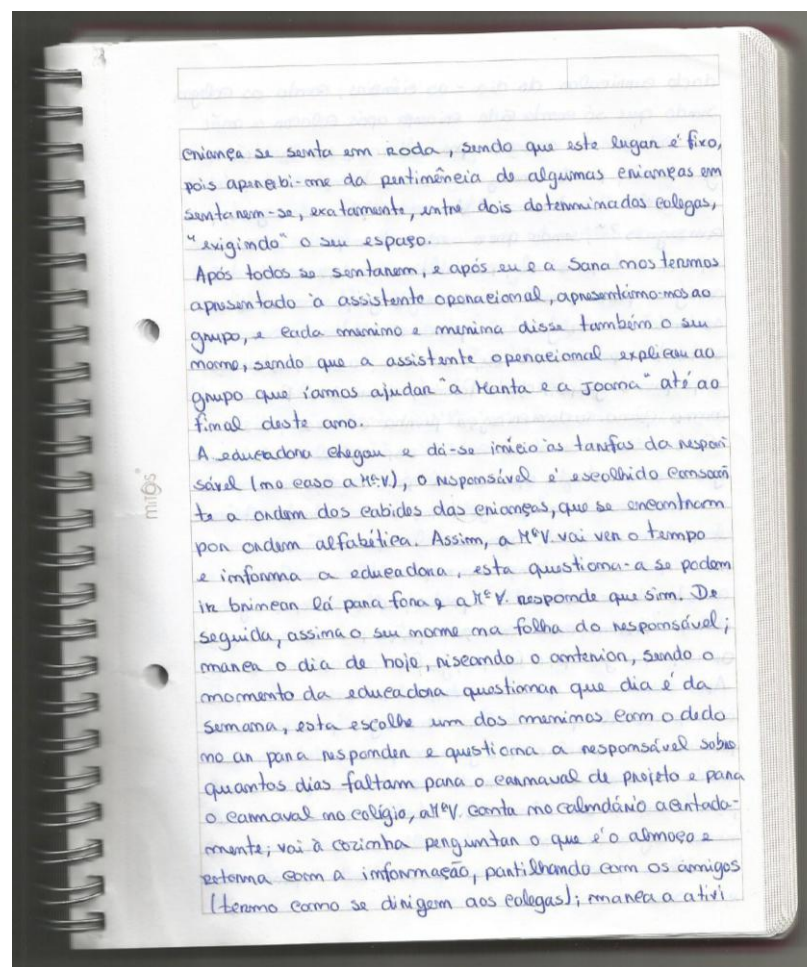 criança se senta em roda, sendo que este lugar é fixo,
pois apercebi-me da pertinência de algumas crianças em
sentarem-se, exatamente, entre dois determinados colegas,
"exigindo" o seu espaço.
Após todos se sentarem, e após eu e a Sara nos termos
apresentado à assistente operacional, apresentámo-nos ao
grupo, e cada menino e menina disse também o seu
nome, sendo que a assistente operacional explicou ao
grupo que íamos ajudar "a Marta e a Joana" até ao
final deste ano.
A educadora chegou e dá-se início às tarefas da respon
sável (no caso a MªV.), o responsável é escolhido consoan
te a ordem dos cabides das crianças, que se encontram
por ordem alfabética. Assim, a MªV. vai ver o tempo
e informa a educadora, esta questiona-a se podem
ir brincar lá para fora e a MªV. responde que sim. De
seguida, assina o seu nome na folha do responsável;
marca o dia de hoje, riscando o anterior, sendo o
momento da educadora questionar que dia é da
semana, esta escolhe um dos meninos com o dedo
no ar para responder e questiona a responsável sobre
quantos dias faltam para o carnaval de projeto e para
o carnaval no colégio, a MªV. conta no calendário acertada-
mente; vai à cozinha perguntar o que é o almoço e
retorna com a informação, partilhando com os amigos
(termo como se dirigem aos colegas); marca a ativi
mitos